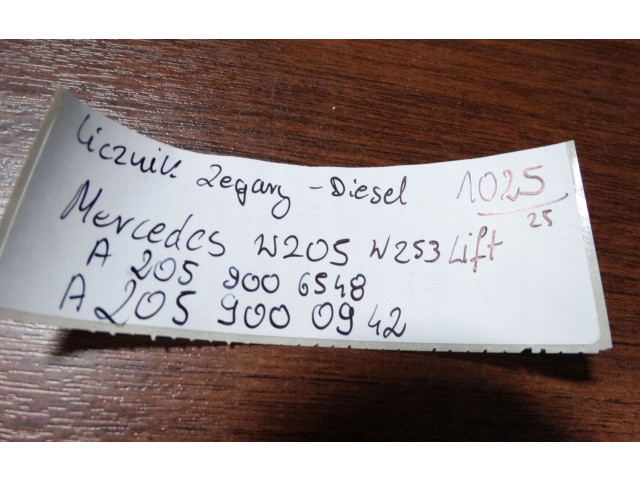 Licznik Zegary - Diesel 1025
25
Mercedes W205 W253 Lift
A 205 900 6548
A 205 900 0942